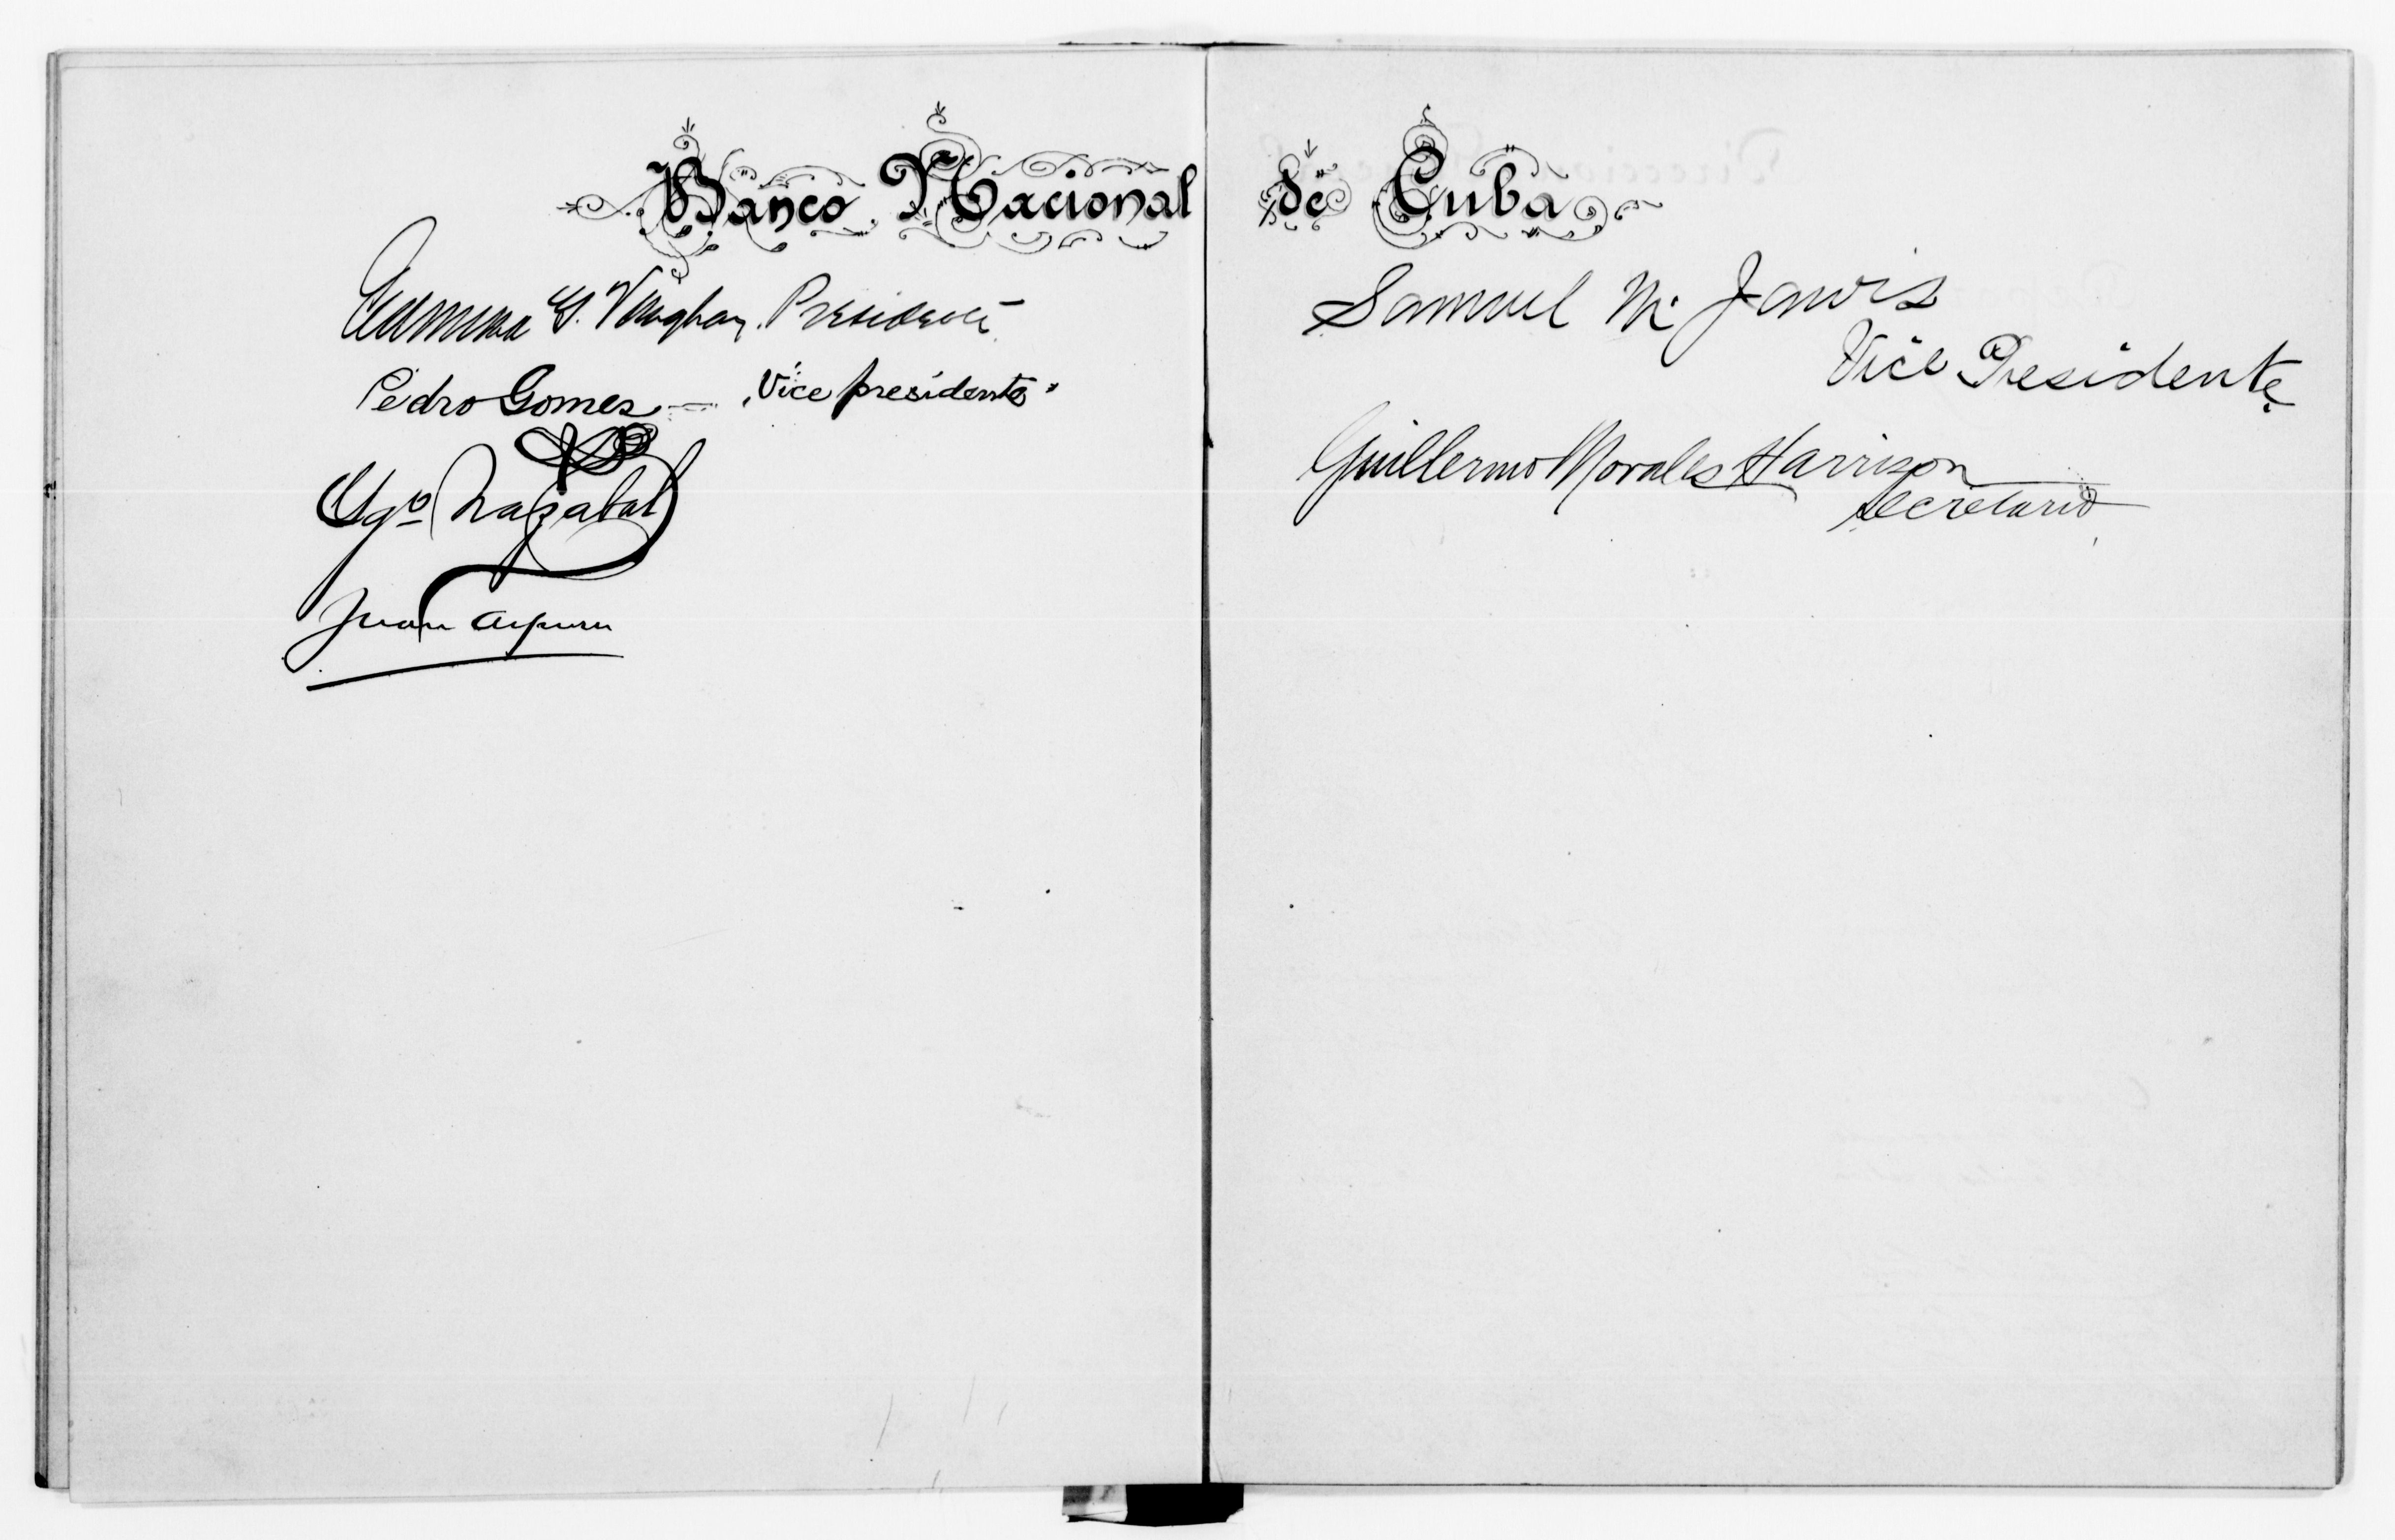 Banco Nacional de Cuba
Edmund G. Vaughan, Presidente
Pedro Gomez — Vice presidente
Ygo Nazabal
Juan
Samuel M. Jarvis
Vice Presidente
Guillermo Morales Harrison
Secretario